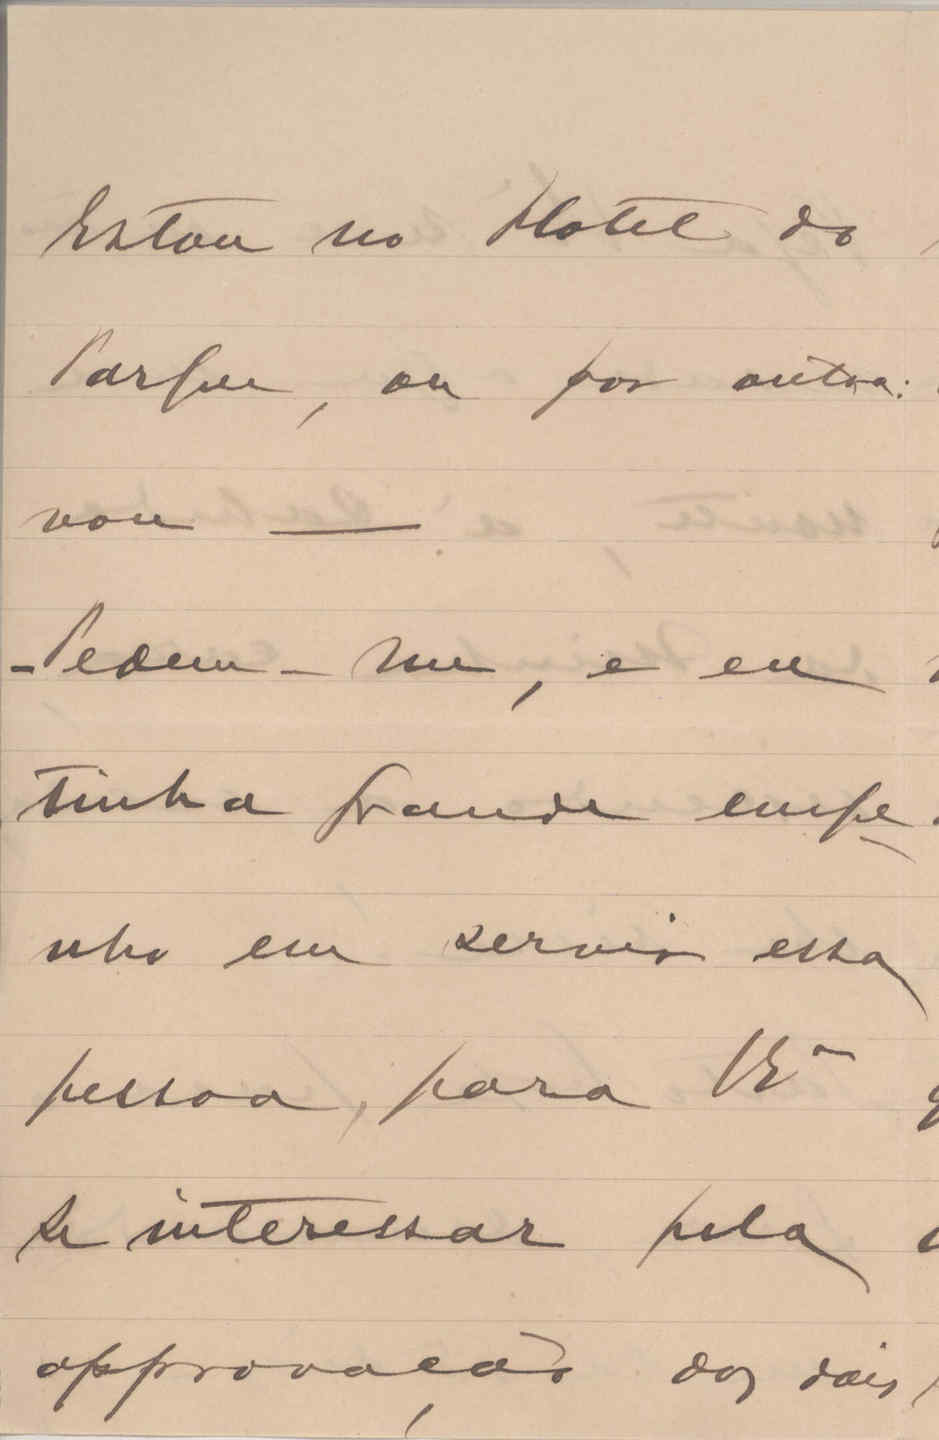 Estou no Hotel do
Parque, ou por outra:
vou —
- Pedem-me, e eu
tinha grande empe
nho em servir essa
pessoa, para VE
se interessar pela
approvação dos dois